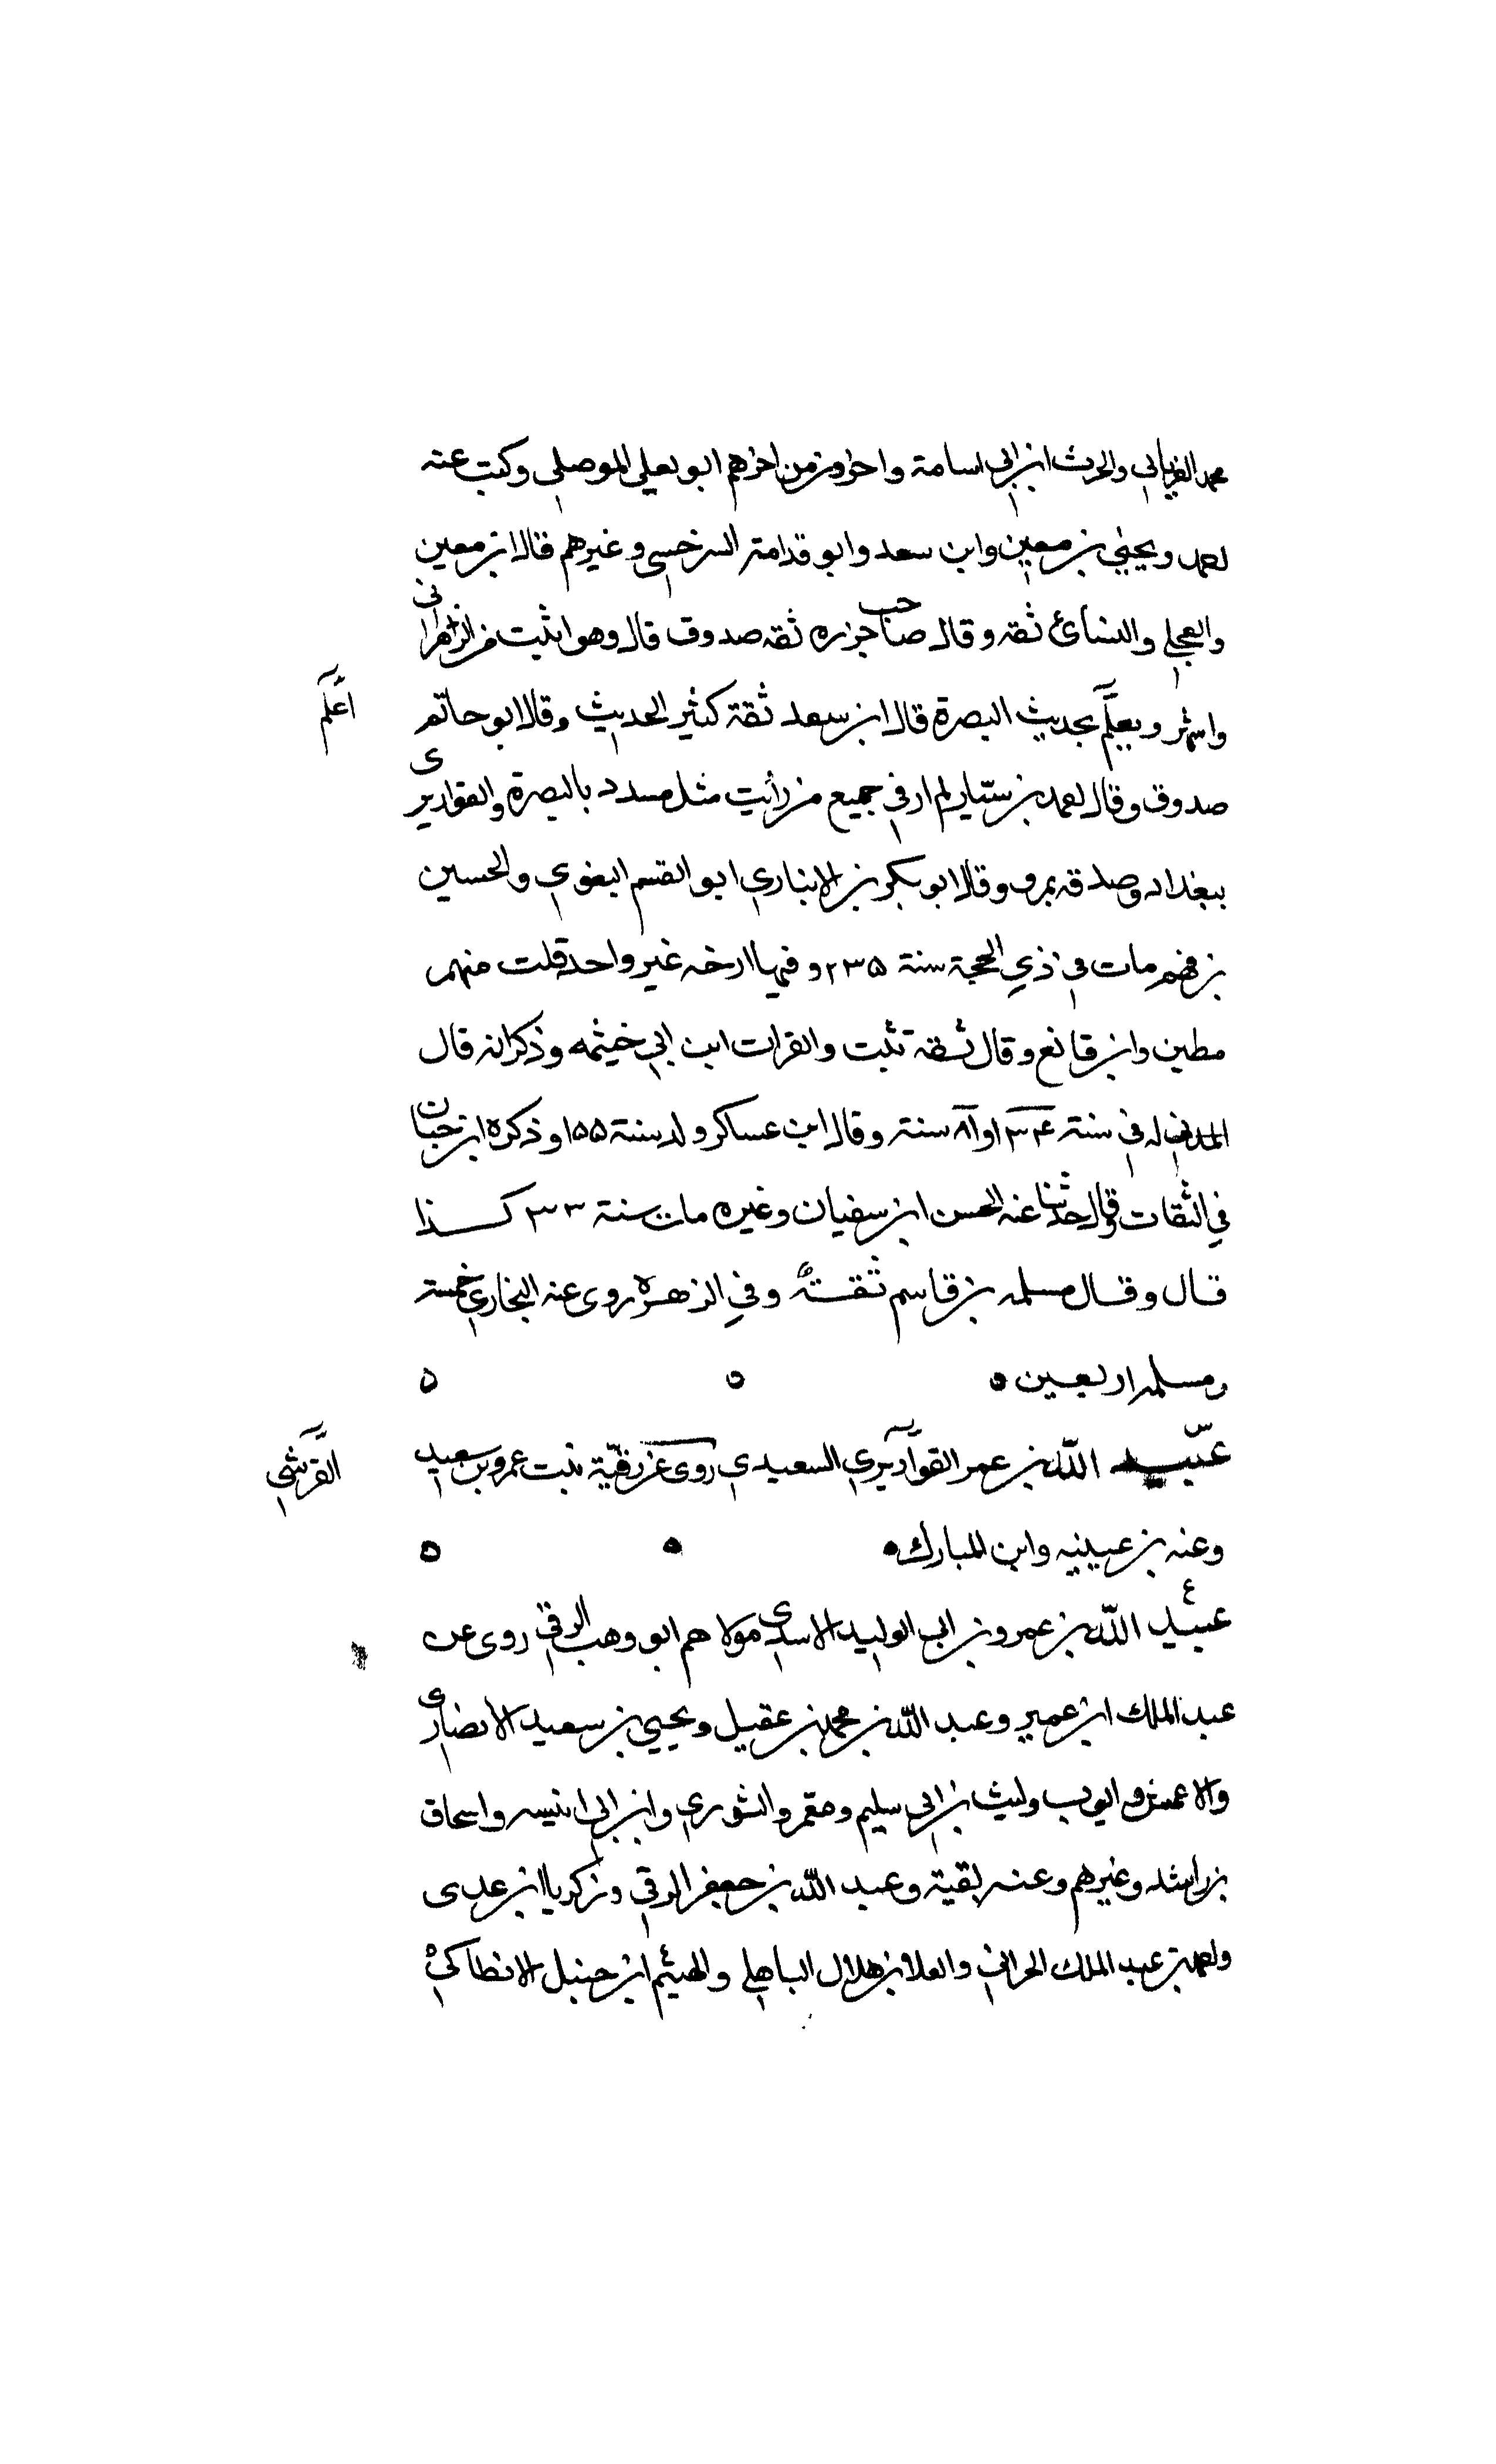 محمد الفريابي والحرث ابن ابي اسامة واخرون من اخرهم ابو يعلى الموصلي وكتب عنه
احمد ويحيى بن معين وابن سعد وابو قدامة السرخسي وغيرهم قال ابن معين
والعجلي والنسائ ثقة وقال صاحب جزره ثقه صدوق قال وهو اثبت من الزهراني
واشهر ويعلم بحديث البصرة قال ابن سعد ثقة كثير الحديث وقال ابو حاتم
اعلم
صدوق وقال احمد بن سيار لم ار في جميع من رأيت مثل مسدد بالبصرة والقواريري
ببغداد وصدقه بمرو وقال ابو بكر بن الانباري ابو القسم البغوي والحسين
بن فهم مات في ذي الحجة سنة ٢٣٥ وفيها ارخه غير واحد قلت منهم
مطين وابن قانع وقال ثقة ثبت والقرات ابن ابي خيثمه وذكر انه قال
له في سنة ٣٤ او ٨١ سنة وقال ابن عساكر ولد سنة ١٥٥ وذكره ابن حبان
في الثقات وقال حدثنا عنه الحسن ابن سفيان وغيره مات سنة ٣٣ كذا
قال وقال مسلمه بن قاسم ثقة وفي الزهرة روى عنه البخاري خمسة
ومسلم اربعين
عبيد الله بن عمر القواريري السعيدي روى عن رقية بنت عمرو بن سعيد
القرشي
وعنه بن عيينه وابن المبارك
ع
عبيد الله بن عمرو بن ابي الوليد الاسدي مولاهم ابو وهب الرقي روى عن
عبد الملك ابن عمير وعبد الله بن محمد بن عقيل ويحيى بن سعيد الانصاري
والاعمش وايوب وليث بن ابي سليم ومعمر والثوري وابن ابي انيسه واسحاق
بن راشد وغيرهم وعنه بقية وعبد الله بن جعفر الرقي وزكريا ابن عدى
واحمد بن عبد الملك الحراني والعلا بن هلال الباهلي والهيثم ابن حنبل الانطاكي